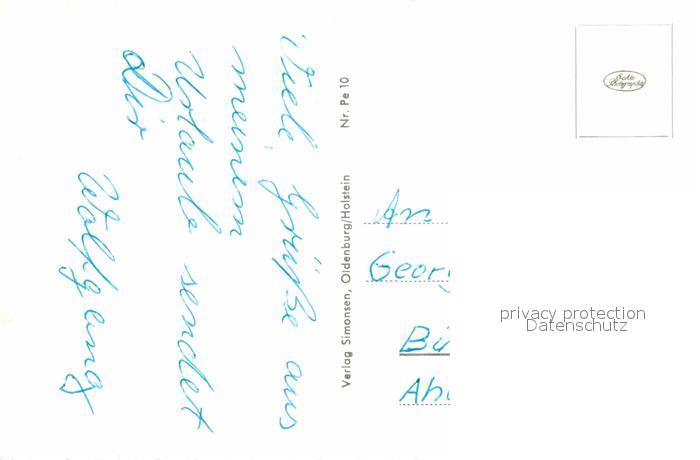 Viele Grüße aus
meinem
Urlaub sendet
Dir
Wolfgang
Nr. Pe 10
Verlag Simonsen, Oldenburg/Holstein
Echte
Photographie
An
Georg
Bü
Aho
privacy protection
Datenschutz